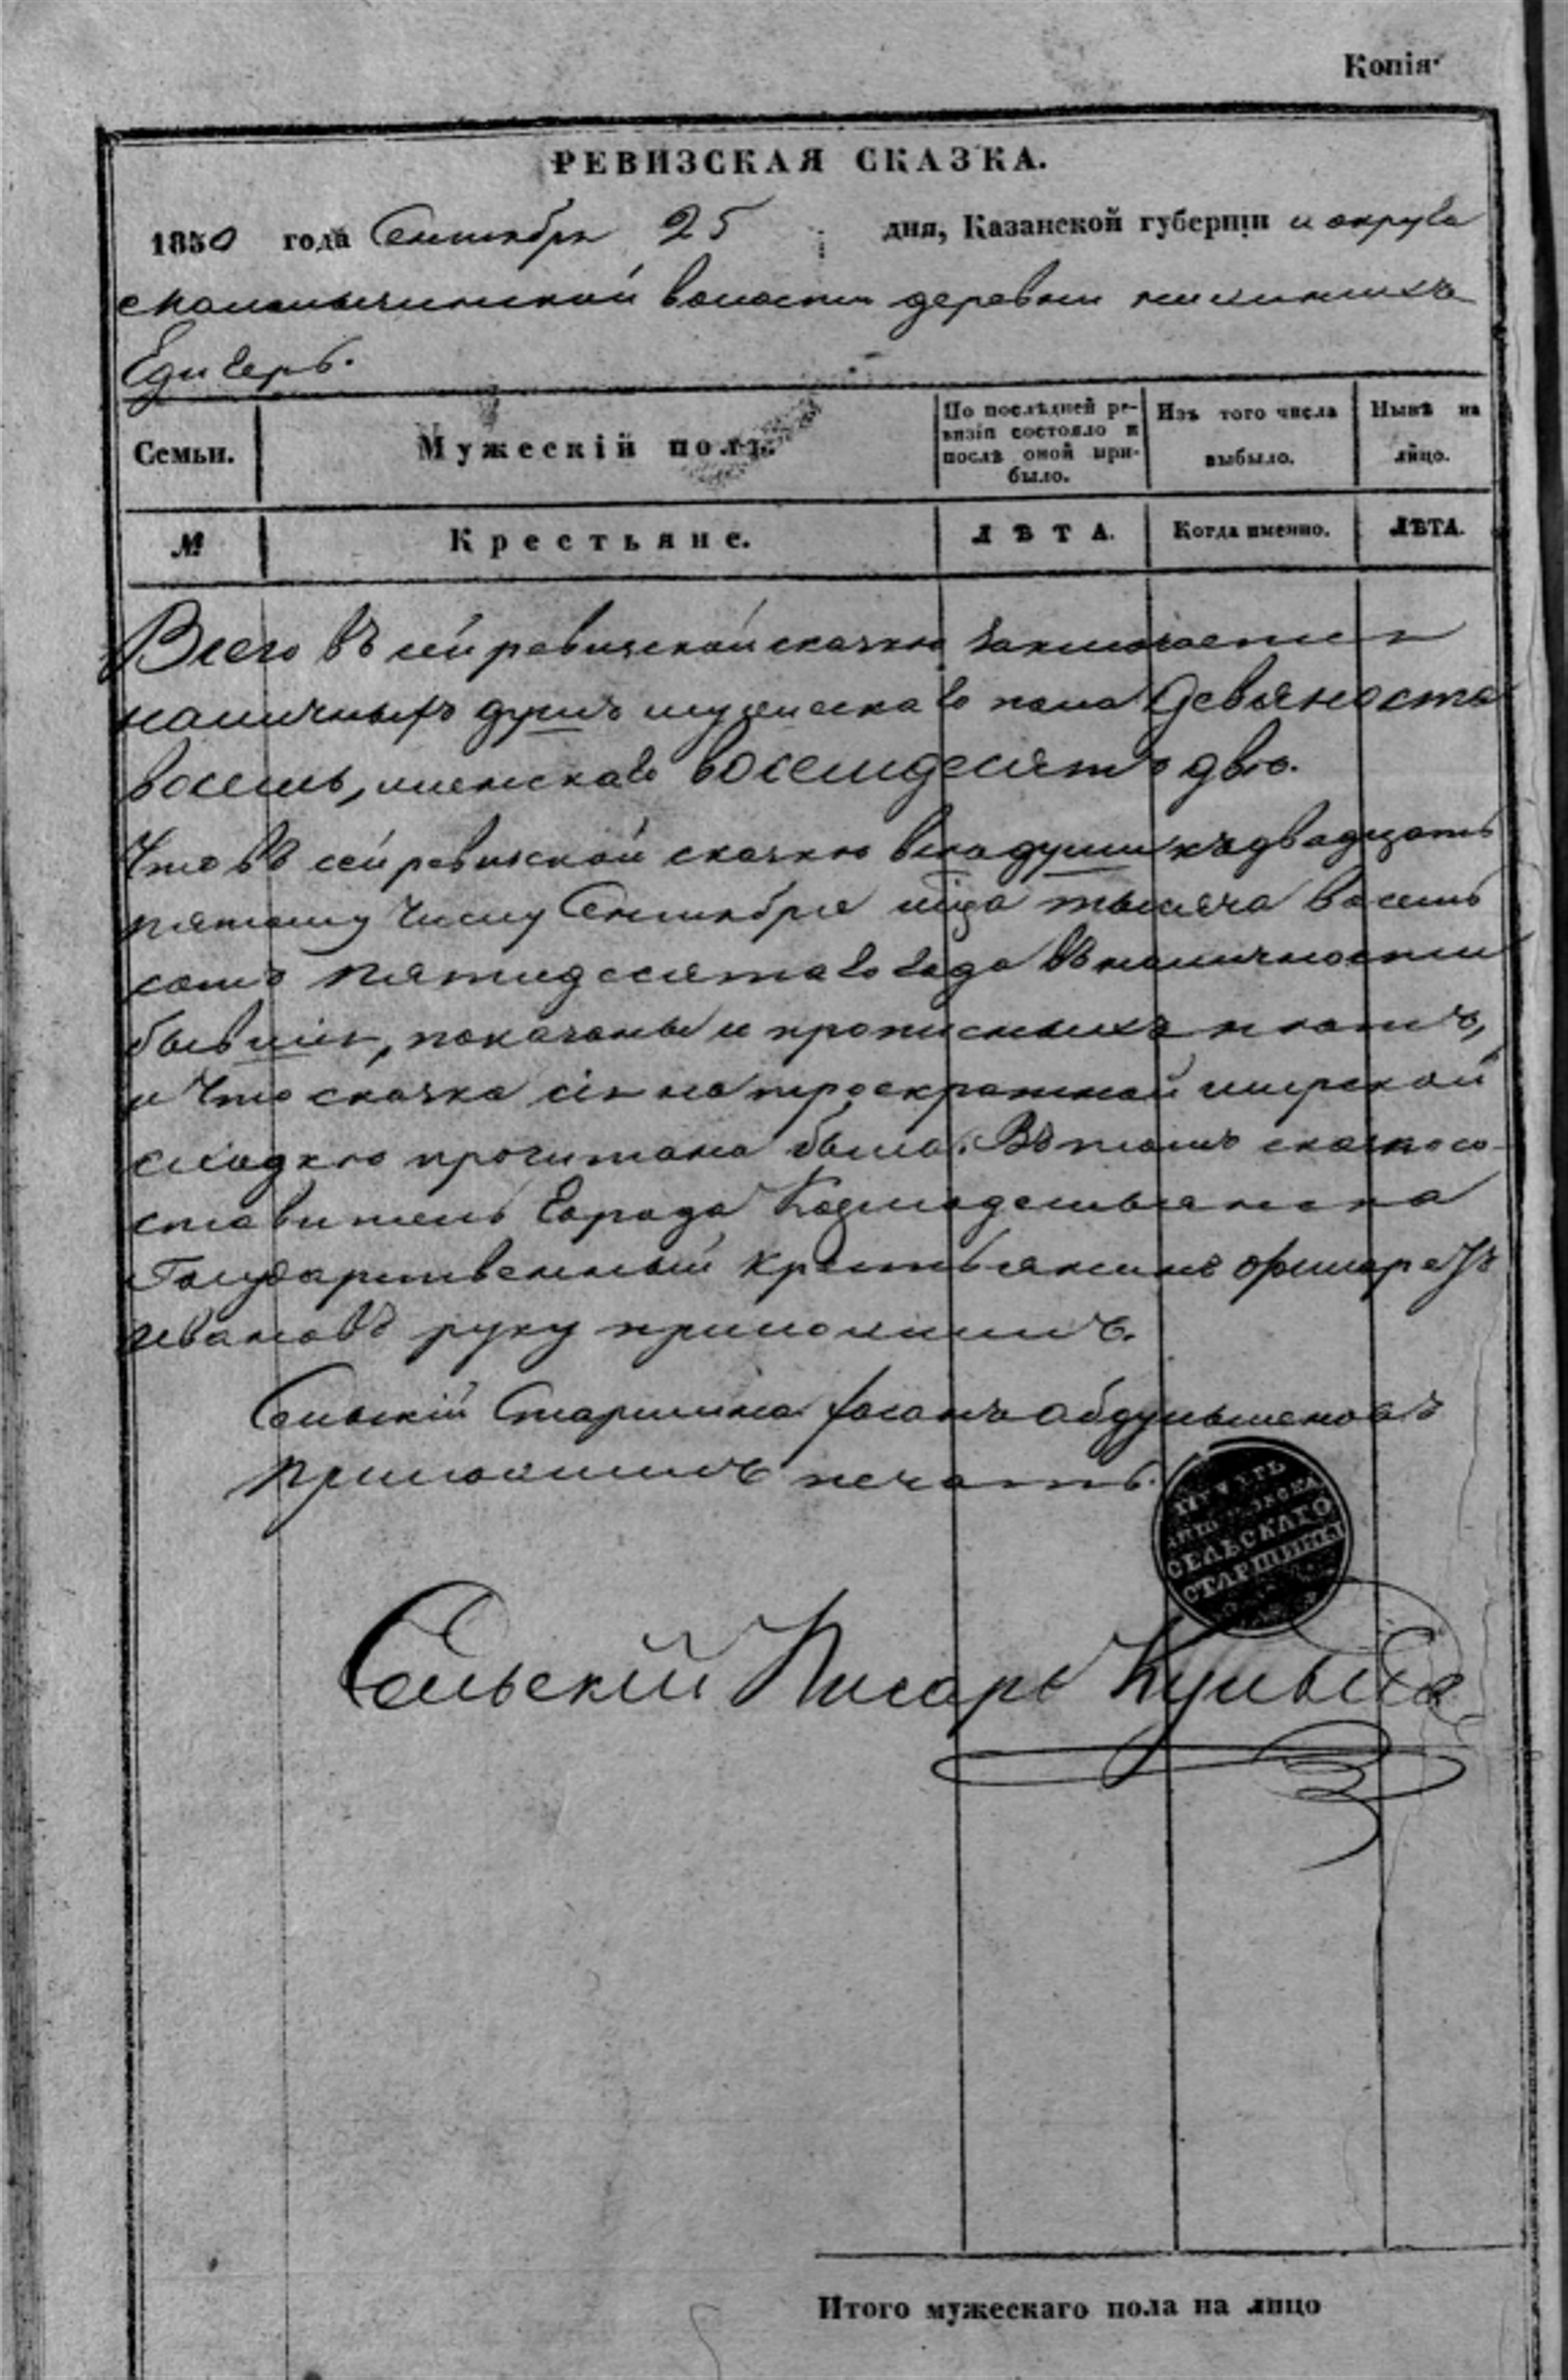 Копія
РЕВИЗСКАЯ СКАЗКА.
1850 года Сентября 25 дня, Казанской губерніи и округа
волости деревни нижнихъ
Едигеръ.
Семьи.
Мужескій полъ.
По послѣдней ре-
визіи состояло и
послѣ оной при-
было.
Изъ того числа
выбыло.
Нынѣ на
лицо.
№
Крестьяне.
ЛѢТА.
Когда именно.
ЛѢТА.
Всего въ сей ревизской сказкѣ заключается
наличныхъ душъ мужескаго пола девяносто
восемь, женскаго восемдесятъ двѣ.
Что въ сей ревизской сказкѣ всѣ души къ двадцать
пятому числу Сентября мца тысяча восемь
сотъ пятидесятаго года въ наличности
бывшія, показаны и прописныхъ нѣтъ,
и что сказка сія на троекратной мирской
сходкѣ прочитана была. Въ томъ сказкосо-
ставитель города Козмодемьянска
Государственный крестьянинъ
Ивановъ руку приложилъ.
Сельскій Старшина
приложилъ печать.
СЕЛЬСКАГО
СТАРШИНЫ
Сельскій Писарь
Итого мужескаго пола на лицо